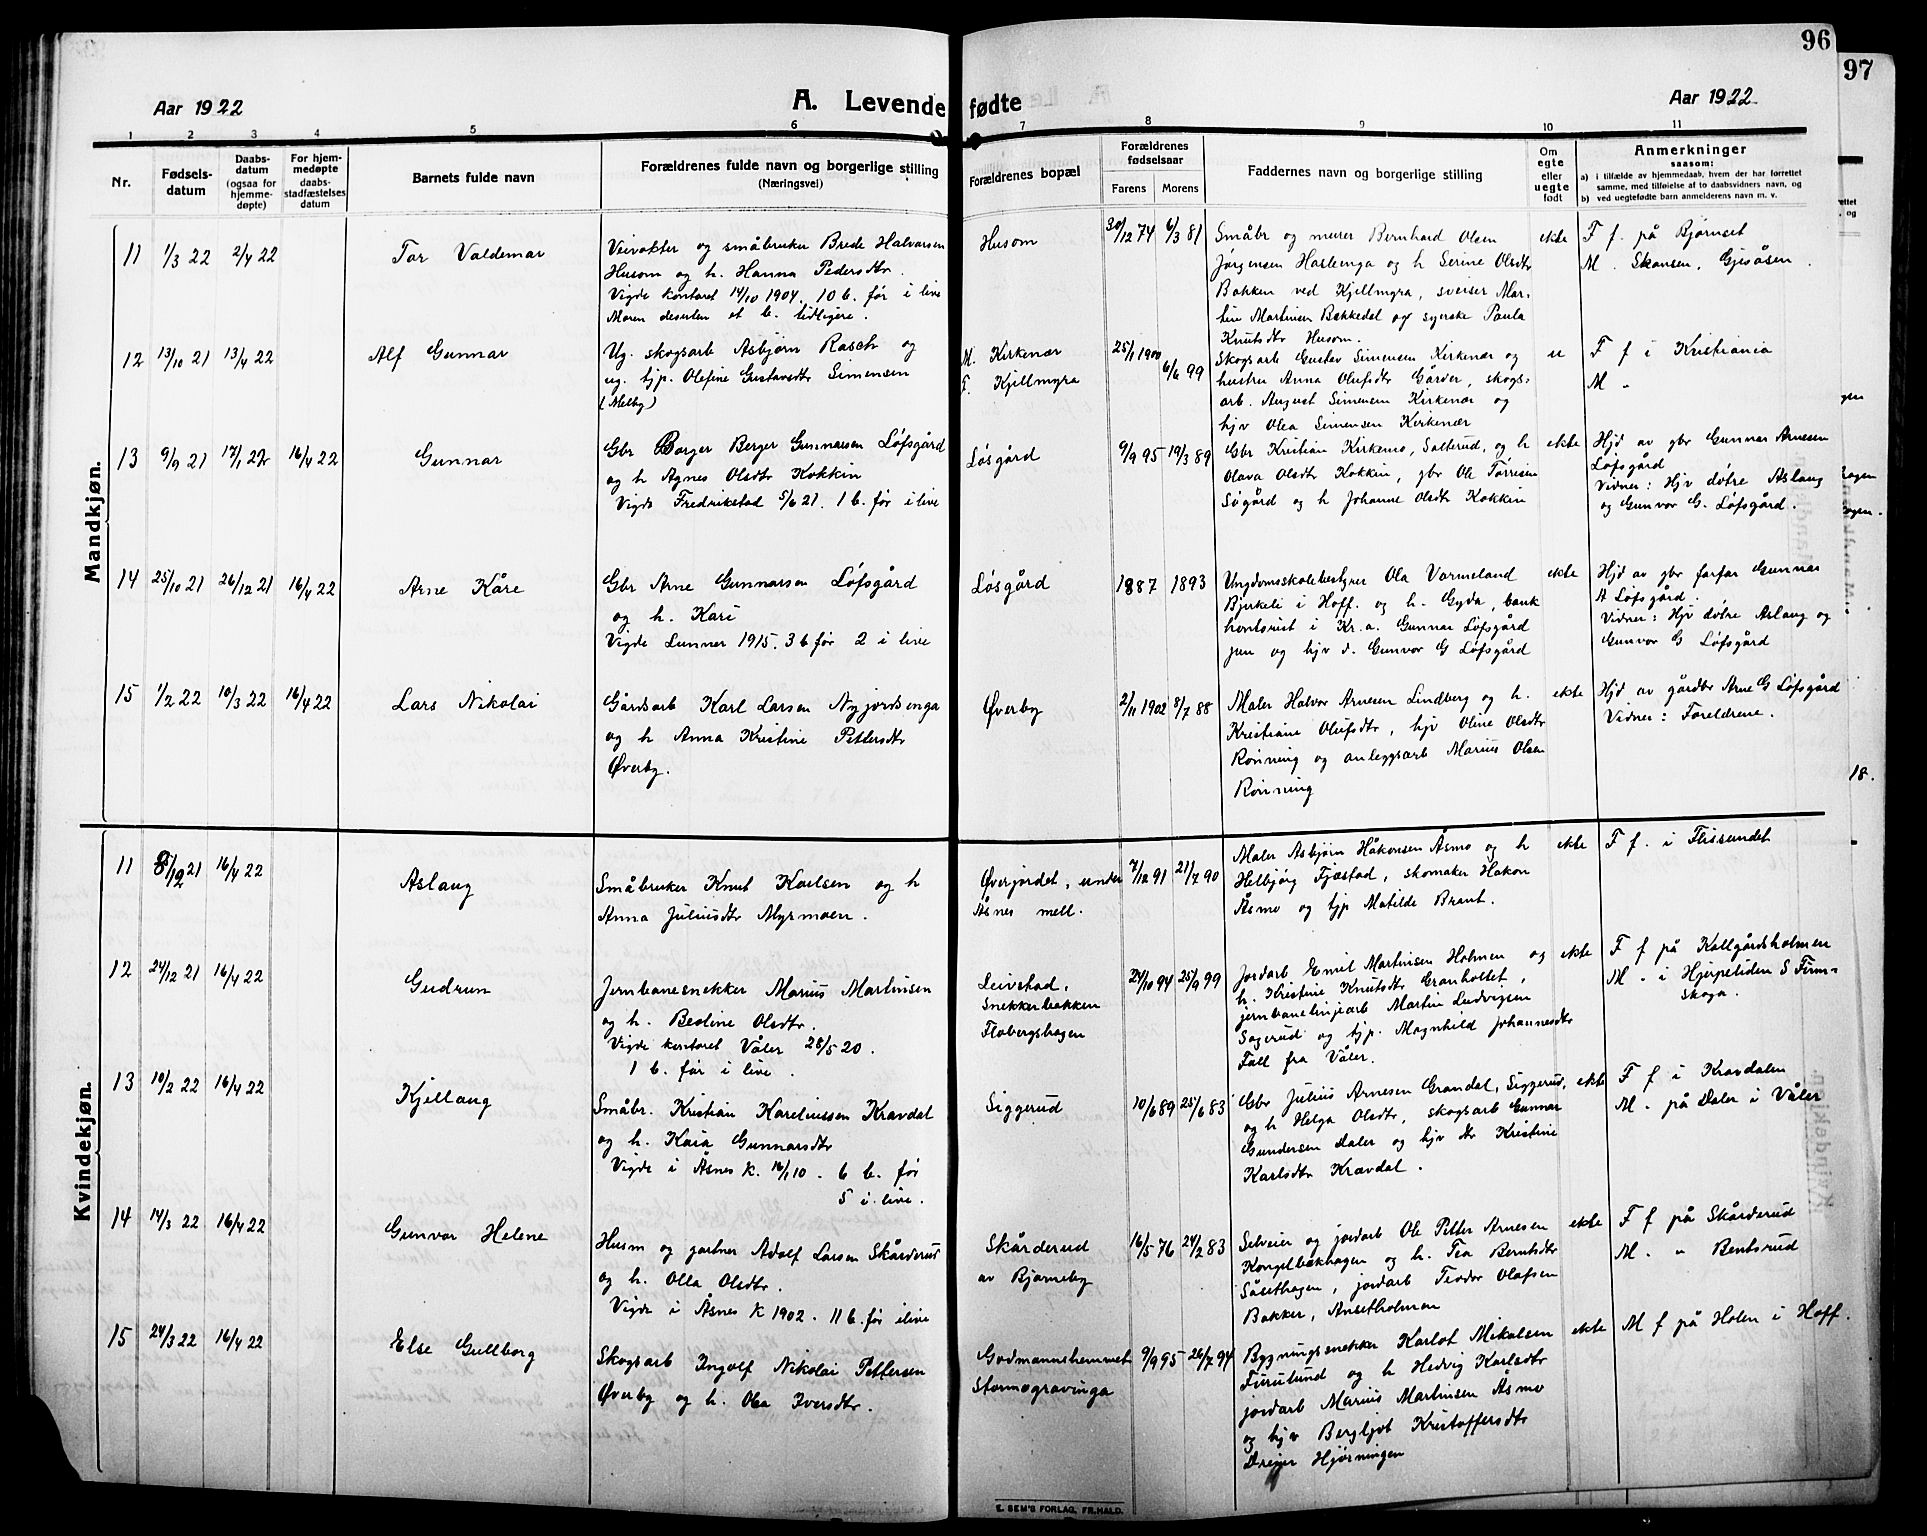 96
97
Aar 1922
A. Levende fødte
Aar 1922
1 2 3 4 5 6 7 8 9 10 11
Nr.
Fødsels-
datum
Daabs-
datum
(ogsaa for
hjemme-
døpte)
For hjem-
medøpte
daabs-
stadfæstelses
datum
Barnets fulde navn
Forældrenes fulde navn og borgerlige stilling
(Næringsvei)
Forældrenes bopæl
Forældrenes
fødselsaar
Farens Morens
Faddernes navn og borgerlige stilling
Om
egte
eller
uegte
født
Anmerkninger
saasom:
a) i tilfælde av hjemmedaab, hvem der har forrettet
samme, med tilføielse af to daabsvidners navn, og
b) ved uegtefødte barn anmelderens navn m. v.
Mandkjøn.
11 1/3 22 2/4 22
Tor Valdemar
Veivokter og småbruker Brede Halvorsen
Husom og h. Hanna Pedersdtr.
Vigde kontoret 14/10 1904. 10 b. før i live
Moren desuten et b. tidligere.
Husom
30/12 74 6/3 81
Småbr og murer Bernhard Olsen
Jørgensen Haslenga og h Serine Olsdtr
Bakken ved Kjellmyra, sveiser Mar-
tin Martinsen Bekkedal og syerske Paula
Knutsdtr Husom.
ekte
F f. på Bjørnset
M. Skansen, Gjesåsen.
12 13/10 21 13/4 22
Alf Gunnar
Ug. skogsarb Asbjørn Rasch og
ug. tjp. Olefine Gustavsdtr Simensen
(Melby)
M. Kirkenær
F. Kjellmyra
25/1 1900 6/6 99
Skogsarb Gustav Simensen Kirkenær og
hustru Anna Olufsdtr Gårder, skogs-
arb. August Simensen Kirkenær og
hjv Olea Simensen Kirkenær
u
F f i Kristiania
M "
13 9/9 21 17/1 22 16/4 22
Gunnar
Gbr Borger Berger Gunnarsen Løfsgård
og h Agnes Olsdtr Kokkin
Vigde Fredrikstad 5/6 21. 1 b. før i live
Løsgård
9/9 95 19/3 89
Gbr Kristian Kirkemo, Sætterud, og h
Olava Olsdtr Kokkin, gbr Ole Torresen
Søgård og h Johanne Olsdtr Kokkin
ekte
Hjd av gbr Gunnar Arnesen
Løfsgård
Vidner: Hjv døtre Aslaug
og Gunvor G. Løfsgård.
14 25/10 21 26/12 21 16/4 22
Arne Kåre
Gbr Arne Gunnarsen Løfsgård
og h. Kari
Vigde Lunner 1915. 3 b før 2 i live
Løsgård
1887 1893
Ungdomsskolebestyrer Ola Vormeland
Bjerkeli i Hoff. og h. Gyda, bank
kontorist i Kr.a. Gunnar Løfsgård
jun og hjv d. Gunvor G Løfsgård
ekte
Hjd av gbr farfar Gunnar
A Løfsgård.
Vidner: Hjv døtre Aslaug og
Gunvor G Løfsgård
15 1/2 22 10/3 22 16/4 22
Lars Nikolai
Gårdsarb Karl Larsen Nyjordsenga
og h Anna Kristine Pettersdtr
Øverby.
Øverby
2/11 1902 8/7 88
Maler Halvor Arnesen Lindberg og h.
Kristiane Olufsdtr, hjv Oline Olsdtr
Rønning og anleggsarb Marius Olsen
Rønning
ekte
Hjd av gårdbr Arne G Løfsgård
Vidner: Foreldrene.
Kvindekjøn.
11 8/12 21 16/4 22
Aslaug
Småbruker Knut Karlsen og h
Anna Juliusdtr Myrmoen.
Øverjordet, under
Åsnes mell.
7/12 91 21/7 90
Maler Asbjørn Håkonsen Åsmo og h
Helbjørg Fjæstad, skomaker Håkon
Åsmo og tjp Matilde Brant.
ekte
F f. i Flisundet
12 24/12 21 16/4 22
Gudrun
Jernbanesnekker Marius Martinsen
og h. Bertine Olsdtr.
Vigde kontoret Våler 28/5 20.
1 b. før i live.
Leivstad,
Snekkerbakken
Flobergshagen
24/10 94 25/9 99
Jordarb Emil Martinsen Holmen og
h. Kristine Knutsdtr Granholtet,
jernbanelinjearb Martin Ludvigsen
Sagerud og tjp. Magnhild Johannesdtr
Fall fra Våler.
ekte
F f på Kallgårdsholmen
M - i Hjerpeliden S Finn-
skoga.
13 10/2 22 16/4 22
Kjellaug
Småbr. Kristian Kareliussen Kravdal
og h. Kaia Gunnarsdtr
Vigde i Åsnes K. 16/1 10. 6 b. før
5 i live.
Siggerud
10/6 89 25/6 83
Gbr Julius Arnesen Grandal, Siggerud,
og h Helga Olsdtr, skogsarb Gunnar
Gundersen Daler og hjv dtr Kristine
Karlsdtr Kravdal.
ekte
F f i Kravdalen
M - på Daler i Våler
14 14/3 22 16/4 22
Gunvor Helene
Husm og gartner Adolf Larsen Skårderud
og h. Olla Olsdtr.
Vigde i Åsnes K 1902. 11 b. før i live
Skårderud
av Bjørneby
16/5 76 24/2 83
Selveier og jordarb Ole Petter Arnesen
Kongelbækhagen og h. Tea Berntsdtr
Såsethagen, jordarb Teodor Olafsen
Bakker, Ansetholmen
ekte
F f på Skårderud
M - " Bentsrud
15 24/3 22 16/4 22
Else Gullborg
Skogsarb Ingolf Nikolai Pettersen
Øverby og h. Olea Iversdtr.
Godmannshemmet
Stormogravinga
9/9 95 26/7 94
Bygningssnekker Karlot Mikalsen
Furulund og h Hedvig Karlsdtr
jordarb Marius Martinsen Åsmo
og hjv Bergljot Kristoffersdtr
Dreier Hjørningen
ekte
M f på Holen i Hoff.
E. SEM'S FORLAG, FR.HALD.